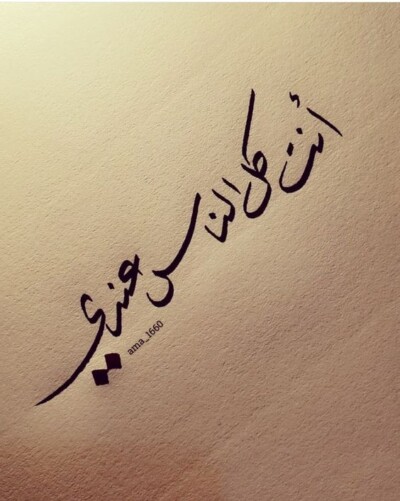 أنت كل الناس عندي
ama_1660